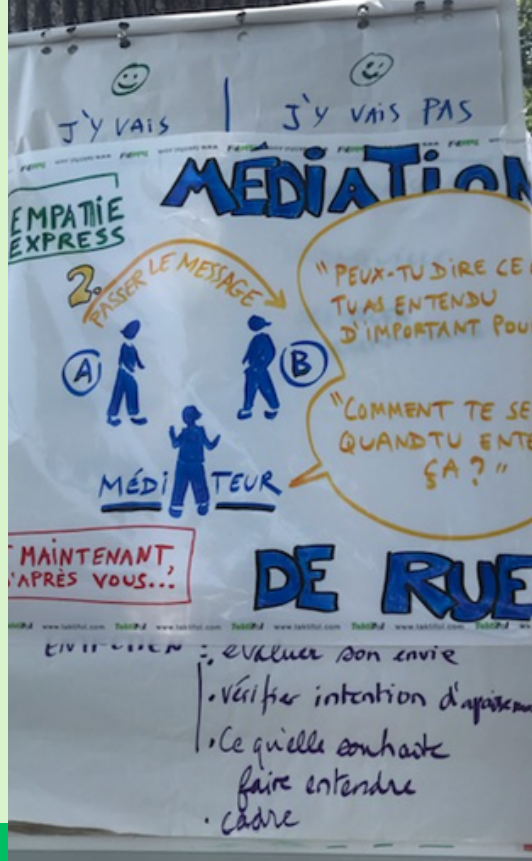 J'Y VAIS
J'Y VAIS PAS
MÉDIATION
EMPATHIE
EXPRESS
2.
PASSER LE MESSAGE
A
B
"PEUX-TU DIRE CE
TU AS ENTENDU
D'IMPORTANT
"COMMENT TE
QUAND TU
ÇA ? "
MÉDI TEUR
MAINTENANT,
D'APRÈS VOUS...
DE RUE
www.taktifol.com www.taktifol.com www.taktifol.com www.taktifol.com
ENTRETIEN : évaluer son envie
. vérifier intention
. Ce qu'elle souhaite
faire entendre
. cadre